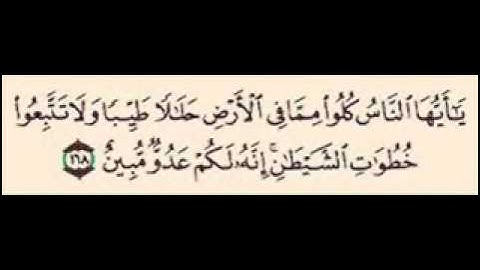 يَٰٓأَيُّهَا ٱلنَّاسُ كُلُوا۟ مِمَّا فِى ٱلْأَرْضِ حَلَٰلًا طَيِّبًا وَلَا تَتَّبِعُوا۟
خُطُوَٰتِ ٱلشَّيْطَٰنِ ۚ إِنَّهُۥ لَكُمْ عَدُوٌّ مُّبِينٌ ١٦٨